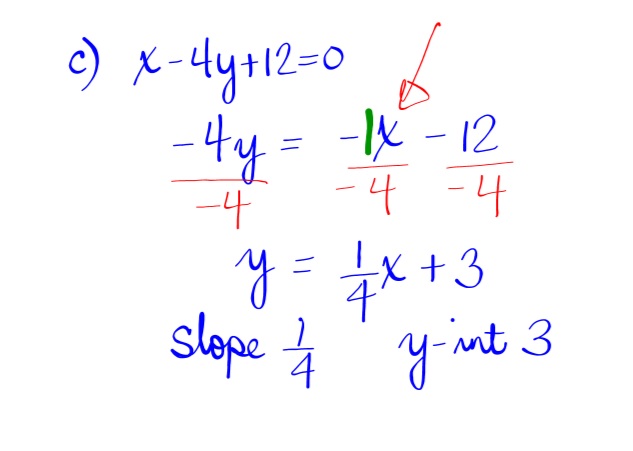 c) x-4y+12=0
-4y = -1x - 12
-4 -4 -4
y = 1/4 x + 3
slope 1/4 y-int 3